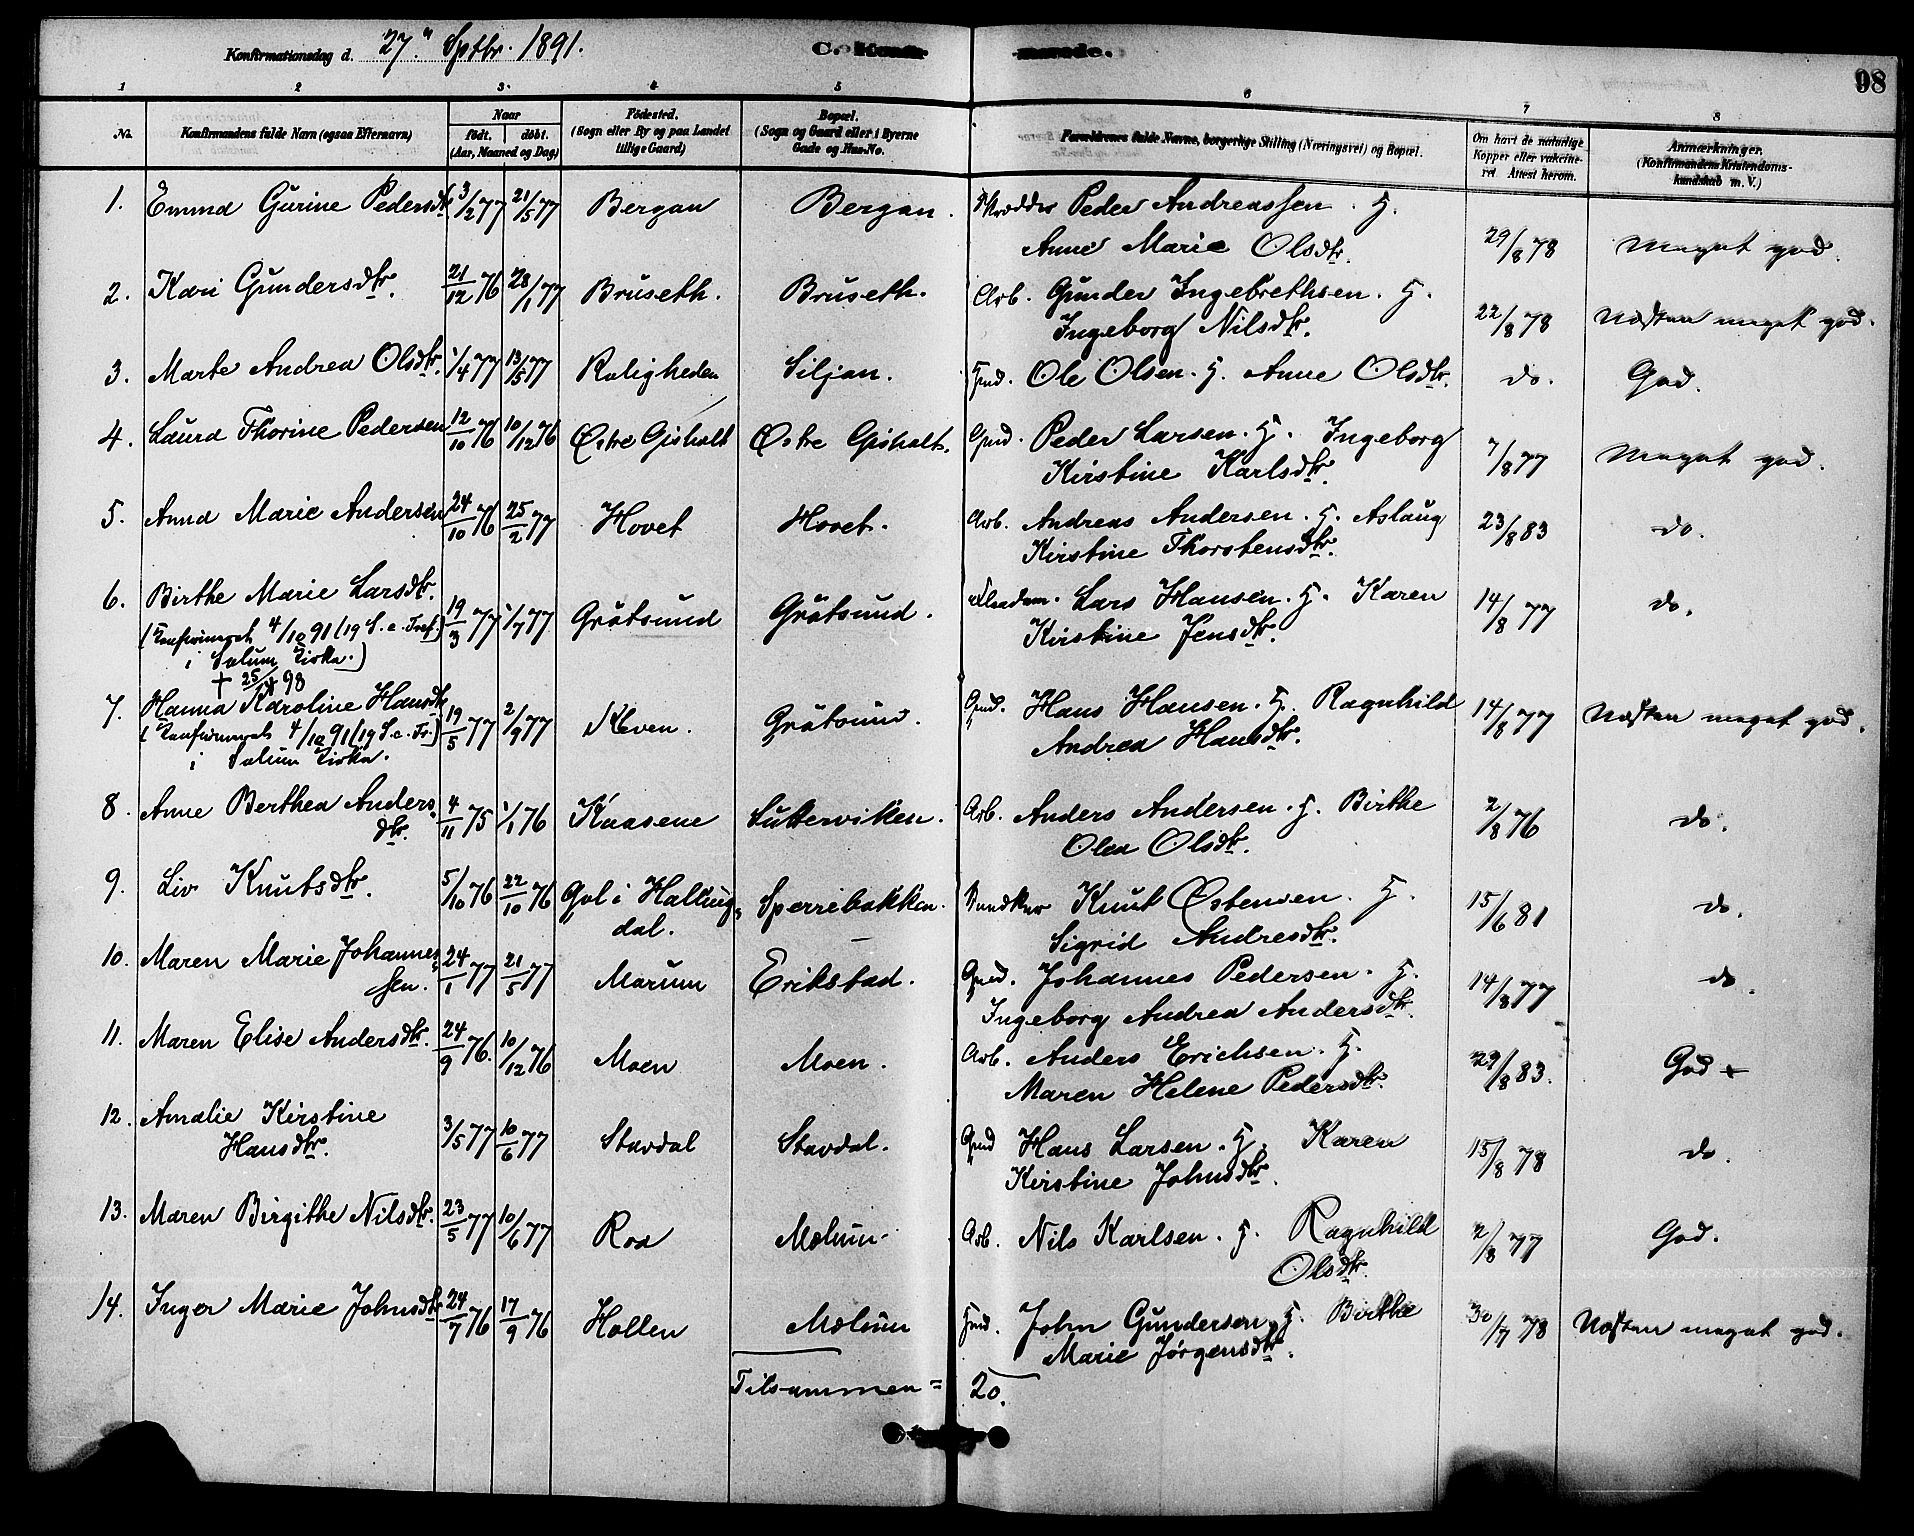 Konfirmationsdag d. 27. Sptbr. 1891.
98
1 2 3. 4 5 6 7 8
No. Konfirmandens fulde Navn (ogsaa Efternavn) Naar født. døbt. (Aar, Maaned og Dag) Fødested. (Sogn eller By og paa Landet tillige Gaard) Bopæl. (Sogn og Gaard eller i Byerne Gade og Hus-No. Forældrenes fulde Navne, borgerlige Stilling (Næringsvei) og Bopæl. Om havt de naturlige Kopper eller vaccineret. Attest herom. Anmærkninger. (Konfirmandens Kristendomskundskab m. V.)
1. Emma Gurine Pedersdtr 3/2 77 21/5 77 Bergan Bergan. Skrædder Peder Andreassen. H.
Anne Marie Olsdtr. 29/8 78 Meget god.
2. Kari Gundersdtr. 21/12 76 28/1 77 Bruseth. Bruseth. Arb. Gunder Ingebrethsen. H.
Ingeborg Nilsdtr. 22/8 78 Næsten meget god.
3. Marte Andrea Olsdtr. 1/4 77 13/5 77 Roligheden Siljan. Hmd. Ole Olsen. H. Anne Olsdtr. do. God.
4. Laura Thorine Pedersen 12/10 76 10/12 76 Østre Gisholt Østre Gisholt. Gmd. Peder Larsen. H. Ingeborg
Kirstine Karlsdtr. 7/8 77 Meget god.
5. Anna Marie Andersen 24/10 76 25/2 77 Hovet Hovet. Arb. Andreas Andersen. H. Aslaug
Kirstine Thorstensdtr. 23/8 83 do.
6. Birthe Marie Larsdtr. 19/3 77 1/7 77 Gråtsund Gråtsund. Lars Hansen. H. Karen
(Konfirmeret 4/10 91 (19 S. e. Tref.) Kirstine Jensdtr. 14/8 77 do.
i Solum Kirke.)
+ 25/4 98
7. Hanna Karoline Hansdtr 19/5 77 2/9 77 Kleven. Gråtsund. Gmd. Hans Hansen. H. Ragnhild
(Konfirmeret 4/10 91 (19 S. e. Tr.) Andrea Hansdtr. 14/8 77 Næsten meget god.
i Solum Kirke.
8. Anne Berthea Anders 4/11 75 1/1 76 Kaasene Luttervikken. Arb. Anders Andersen. H. Birthe
dtr. Olea Olsdtr. 2/8 76 do.
9. Liv Knutsdtr. 5/10 76 22/10 76 Gol i Halling Sperrebakken. Knut Østensen. H.
dal. Sigrid Andresdtr. 15/6 81 do.
10. Maren Marie Johannes 24/1 77 21/5 77 Marum Erikstad. Gmd. Johannes Pedersen. H.
sen. Ingeborg Andrea Andersdtr. 14/8 77 do.
11. Maren Elise Andersdtr. 24/9 76. 10/12 76 Moen Moen. Arb. Anders Erichsen. H.
Maren Helene Pedersdtr. 29/8 83. God +
12. Amalie Kirstine 3/5 77 10/6 77 Stavdal Stavdal. Gmd Hans Larsen. H. Karen
Hansdtr. Kirstine Johnsdtr. 15/8 78 do.
13. Maren Birgithe Nilsdtr. 23/5 77 10/6 77 Roa Mælum. Arb. Nils Karlsen. H. Ragnhild
Olsdtr. 2/8 77 God.
14. Inger Marie Johnsdtr 24/7 76 17/9 76 Hollen Mælum Hmd. John Gundersen H. Birthe
Marie Jørgensdtr. 30/7 78 Næsten meget god.
Tilsammen = 20.